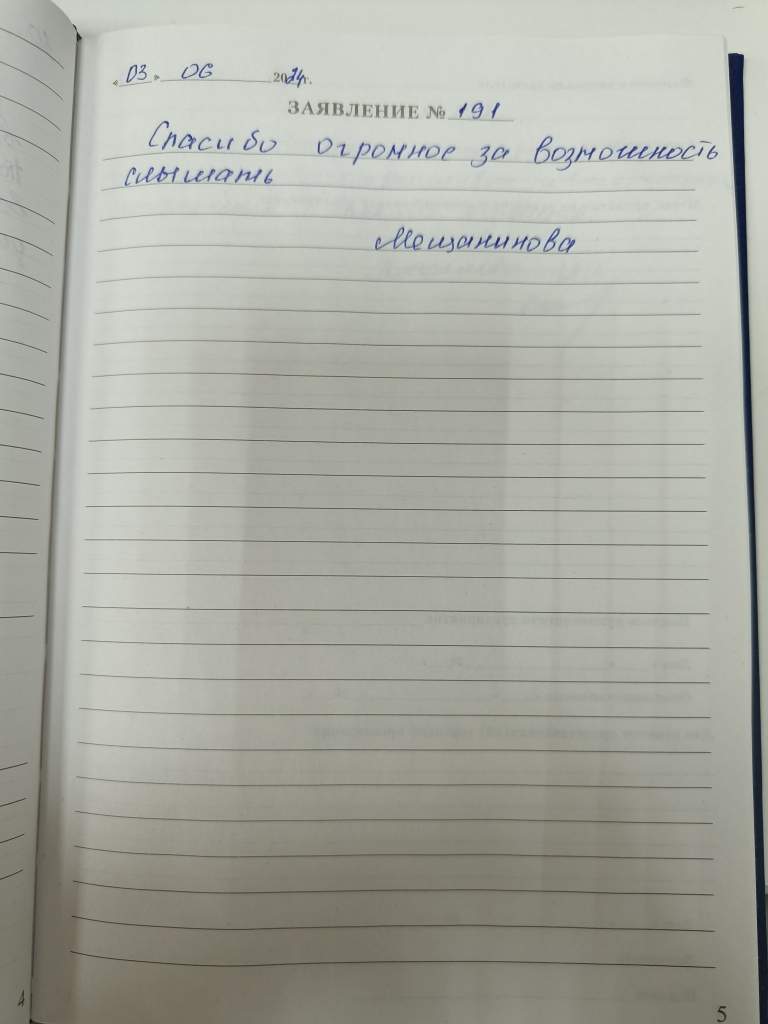 « 03 » 06 2024г.
ЗАЯВЛЕНИЕ № 191
Спасибо огромное за возможность
слышать
Мещанинова
4
5